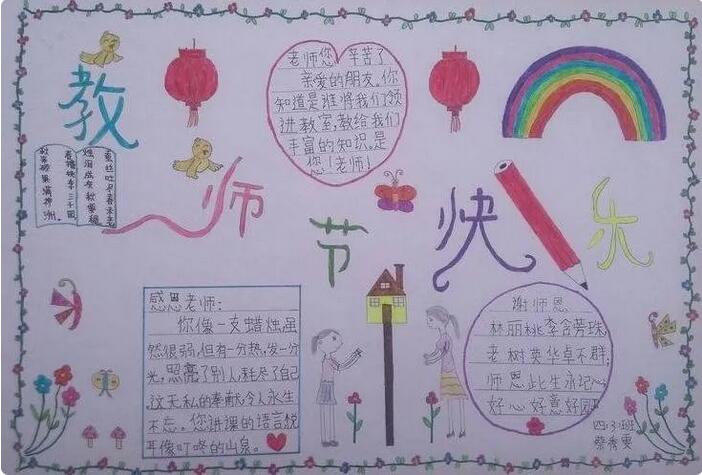 教师节快乐
老师您辛苦了
亲爱的朋友。你
知道是谁将我们领
进教室,教给我们
丰富的知识。是
您!老师!
春蚕吐尽春未老
烛泪成灰秋更稠
春播桃李三千圃
秋来硕果满神州。
感恩老师:
你像一支蜡烛虽
然很弱,但有一分热,发一分
光,照亮了别人,耗尽了自己
,这无私的奉献,令人永生
不忘。您讲课的语言悦
耳像叮咚的山泉。
谢师恩
林丽桃李含芳珠,
老树英华卓不群,
师恩此生承记心
好心好意好园
四.3班